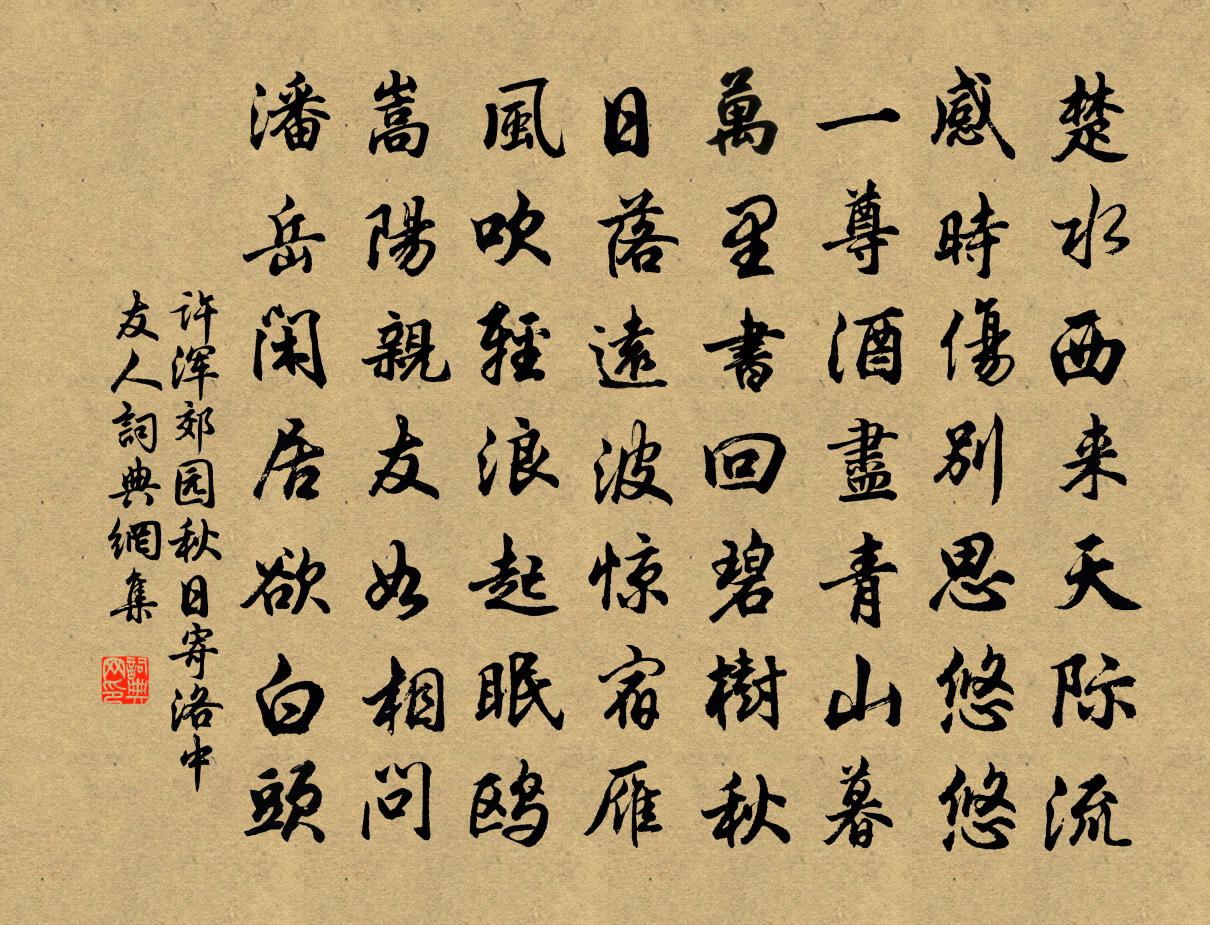 楚水西来天际流
感時傷別思悠悠
一尊酒盡青山暮
萬里書回碧樹秋
日落遠波惊宿雁
風吹輕浪起眠鸥
嵩陽親友如相問
潘岳閑居欲白頭
许浑郊园秋日寄洛中
友人詞典網集
詞典网印